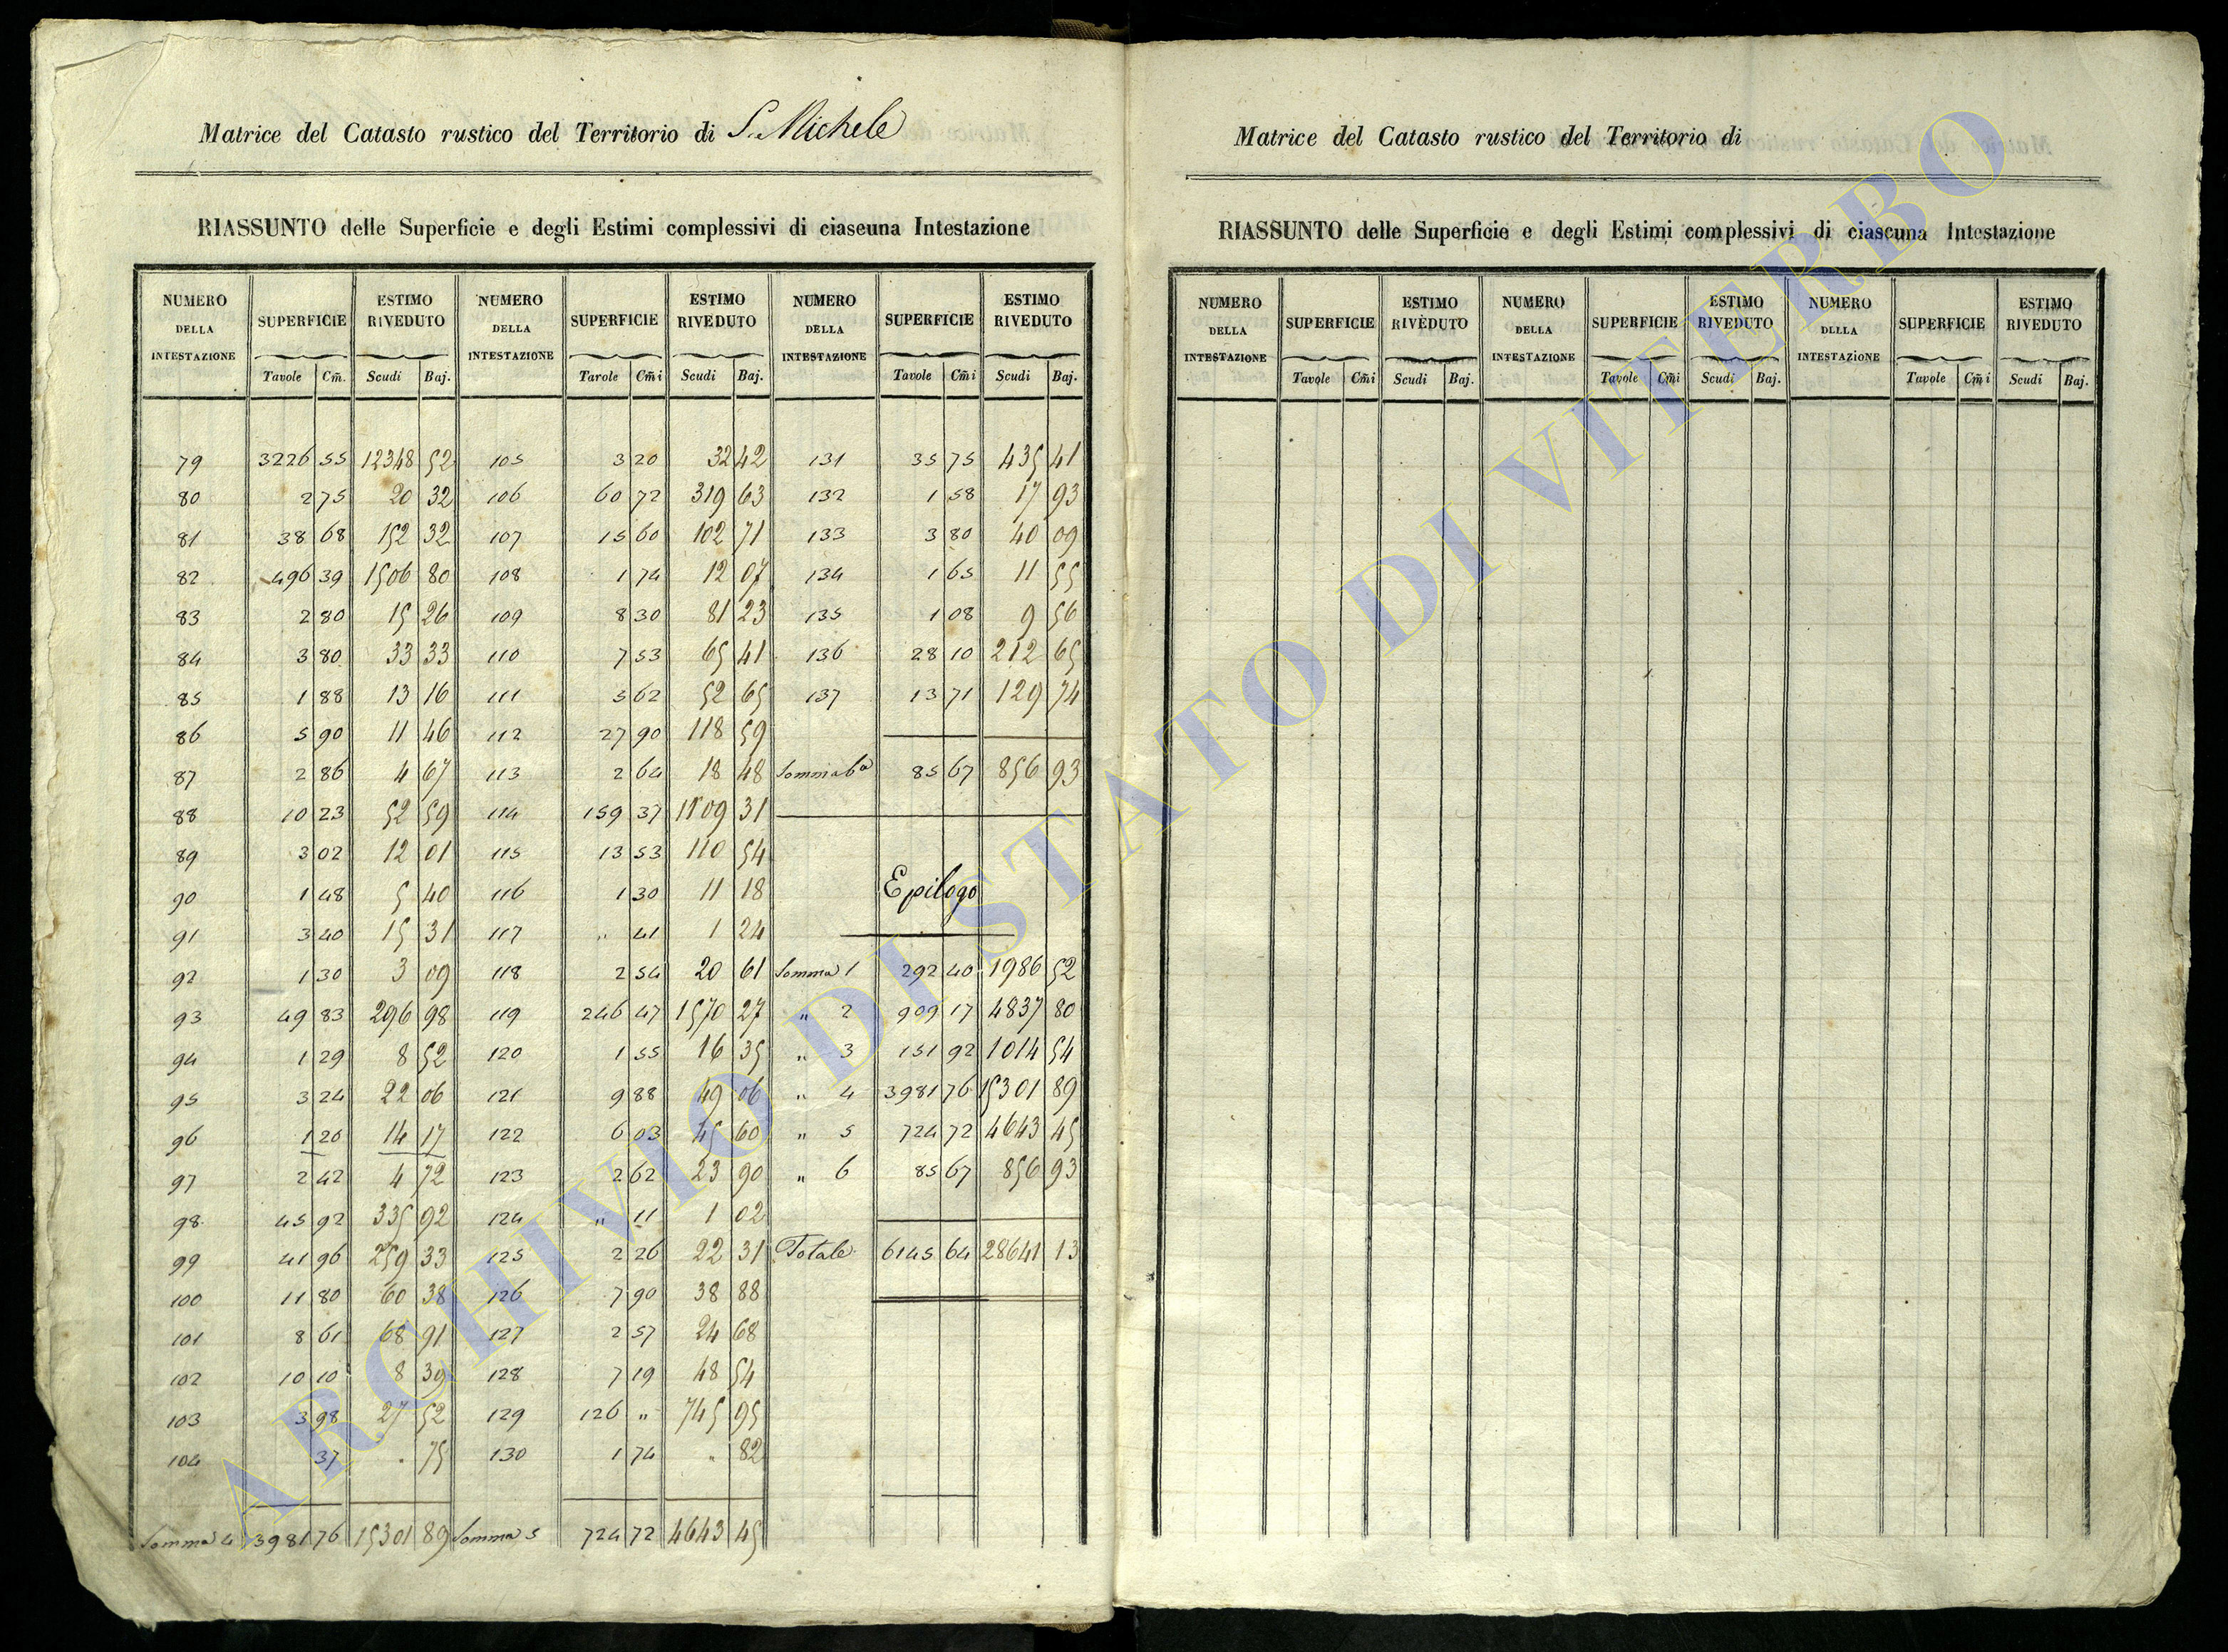 Matrice del Catasto rustico del Territorio di S. Michele
RIASSUNTO delle Superficie e degli Estimi complessivi di ciaseuna Intestazione
NUMERO DELLA INTESTAZIONE SUPERFICIE ESTIMO RIVEDUTO NUMERO DELLA INTESTAZIONE SUPERFICIE ESTIMO RIVEDUTO NUMERO DELLA INTESTAZIONE SUPERFICIE ESTIMO RIVEDUTO
Tavole Cm̃. Scudi Baj. Tarole Cm̃i Scudi Baj. Tavole Cm̃i Scudi Baj.
79 3226 55 12348 52 105 3 20 32 42 131 35 75 435 41
80 2 75 20 32 106 60 72 319 63 132 1 58 17 93
81 38 68 152 32 107 15 60 102 71 133 3 80 40 09
82 496 39 1506 80 108 1 74 12 07 134 1 65 11 55
83 2 80 15 26 109 8 30 81 23 135 1 08 9 56
84 3 80 33 33 110 7 53 65 41 136 28 10 212 65
85 1 88 13 16 111 5 62 52 65 137 13 71 129 74
86 5 90 11 46 112 27 90 118 59
87 2 86 4 67 113 2 64 18 48 Somma 6a 85 67 856 93
88 10 23 52 59 114 159 37 1109 31
89 3 02 12 01 115 13 53 110 54
90 1 48 5 40 116 1 30 11 18 Epilogo
91 3 40 15 31 117 " 41 1 24
92 1 30 3 09 118 2 54 20 61 Somma 1 292 40 1986 52
93 49 83 296 98 119 246 47 1570 27 " 2 909 17 4837 80
94 1 29 8 52 120 1 55 16 35 " 3 151 92 1014 54
95 3 24 22 06 121 9 88 49 06 " 4 3981 76 15301 89
96 1 20 14 17 122 6 03 45 60 " 5 724 72 4643 45
97 2 42 4 72 123 2 62 23 90 " 6 85 67 856 93
98 45 92 335 92 124 " 11 1 02
99 41 96 259 33 125 2 26 22 31 Totale 6145 64 28641 13
100 11 80 60 38 126 7 90 38 88
101 8 61 68 91 127 2 57 24 68
102 10 10 8 39 128 7 19 48 54
103 3 98 27 52 129 126 " 745 95
104 37 . 75 130 1 74 " 82
Somma 4 3981 76 15301 89 Somma 5 724 72 4643 45
Matrice del Catasto rustico del Territorio di
RIASSUNTO delle Superficie e degli Estimi complessivi di ciascuna Intestazione
NUMERO DELLA INTESTAZIONE SUPERFICIE ESTIMO RIVEDUTO NUMERO DELLA INTESTAZIONE SUPERFICIE ESTIMO RIVEDUTO NUMERO DLLLA INTESTAZIONE SUPERFICIE ESTIMO RIVEDUTO
Tavole Cm̃i Scudi Baj. Tavole Cm̃i Scudi Baj. Tavole Cm̃i Scudi Baj.
ARCHIVIO DI STATO DI VITERBO